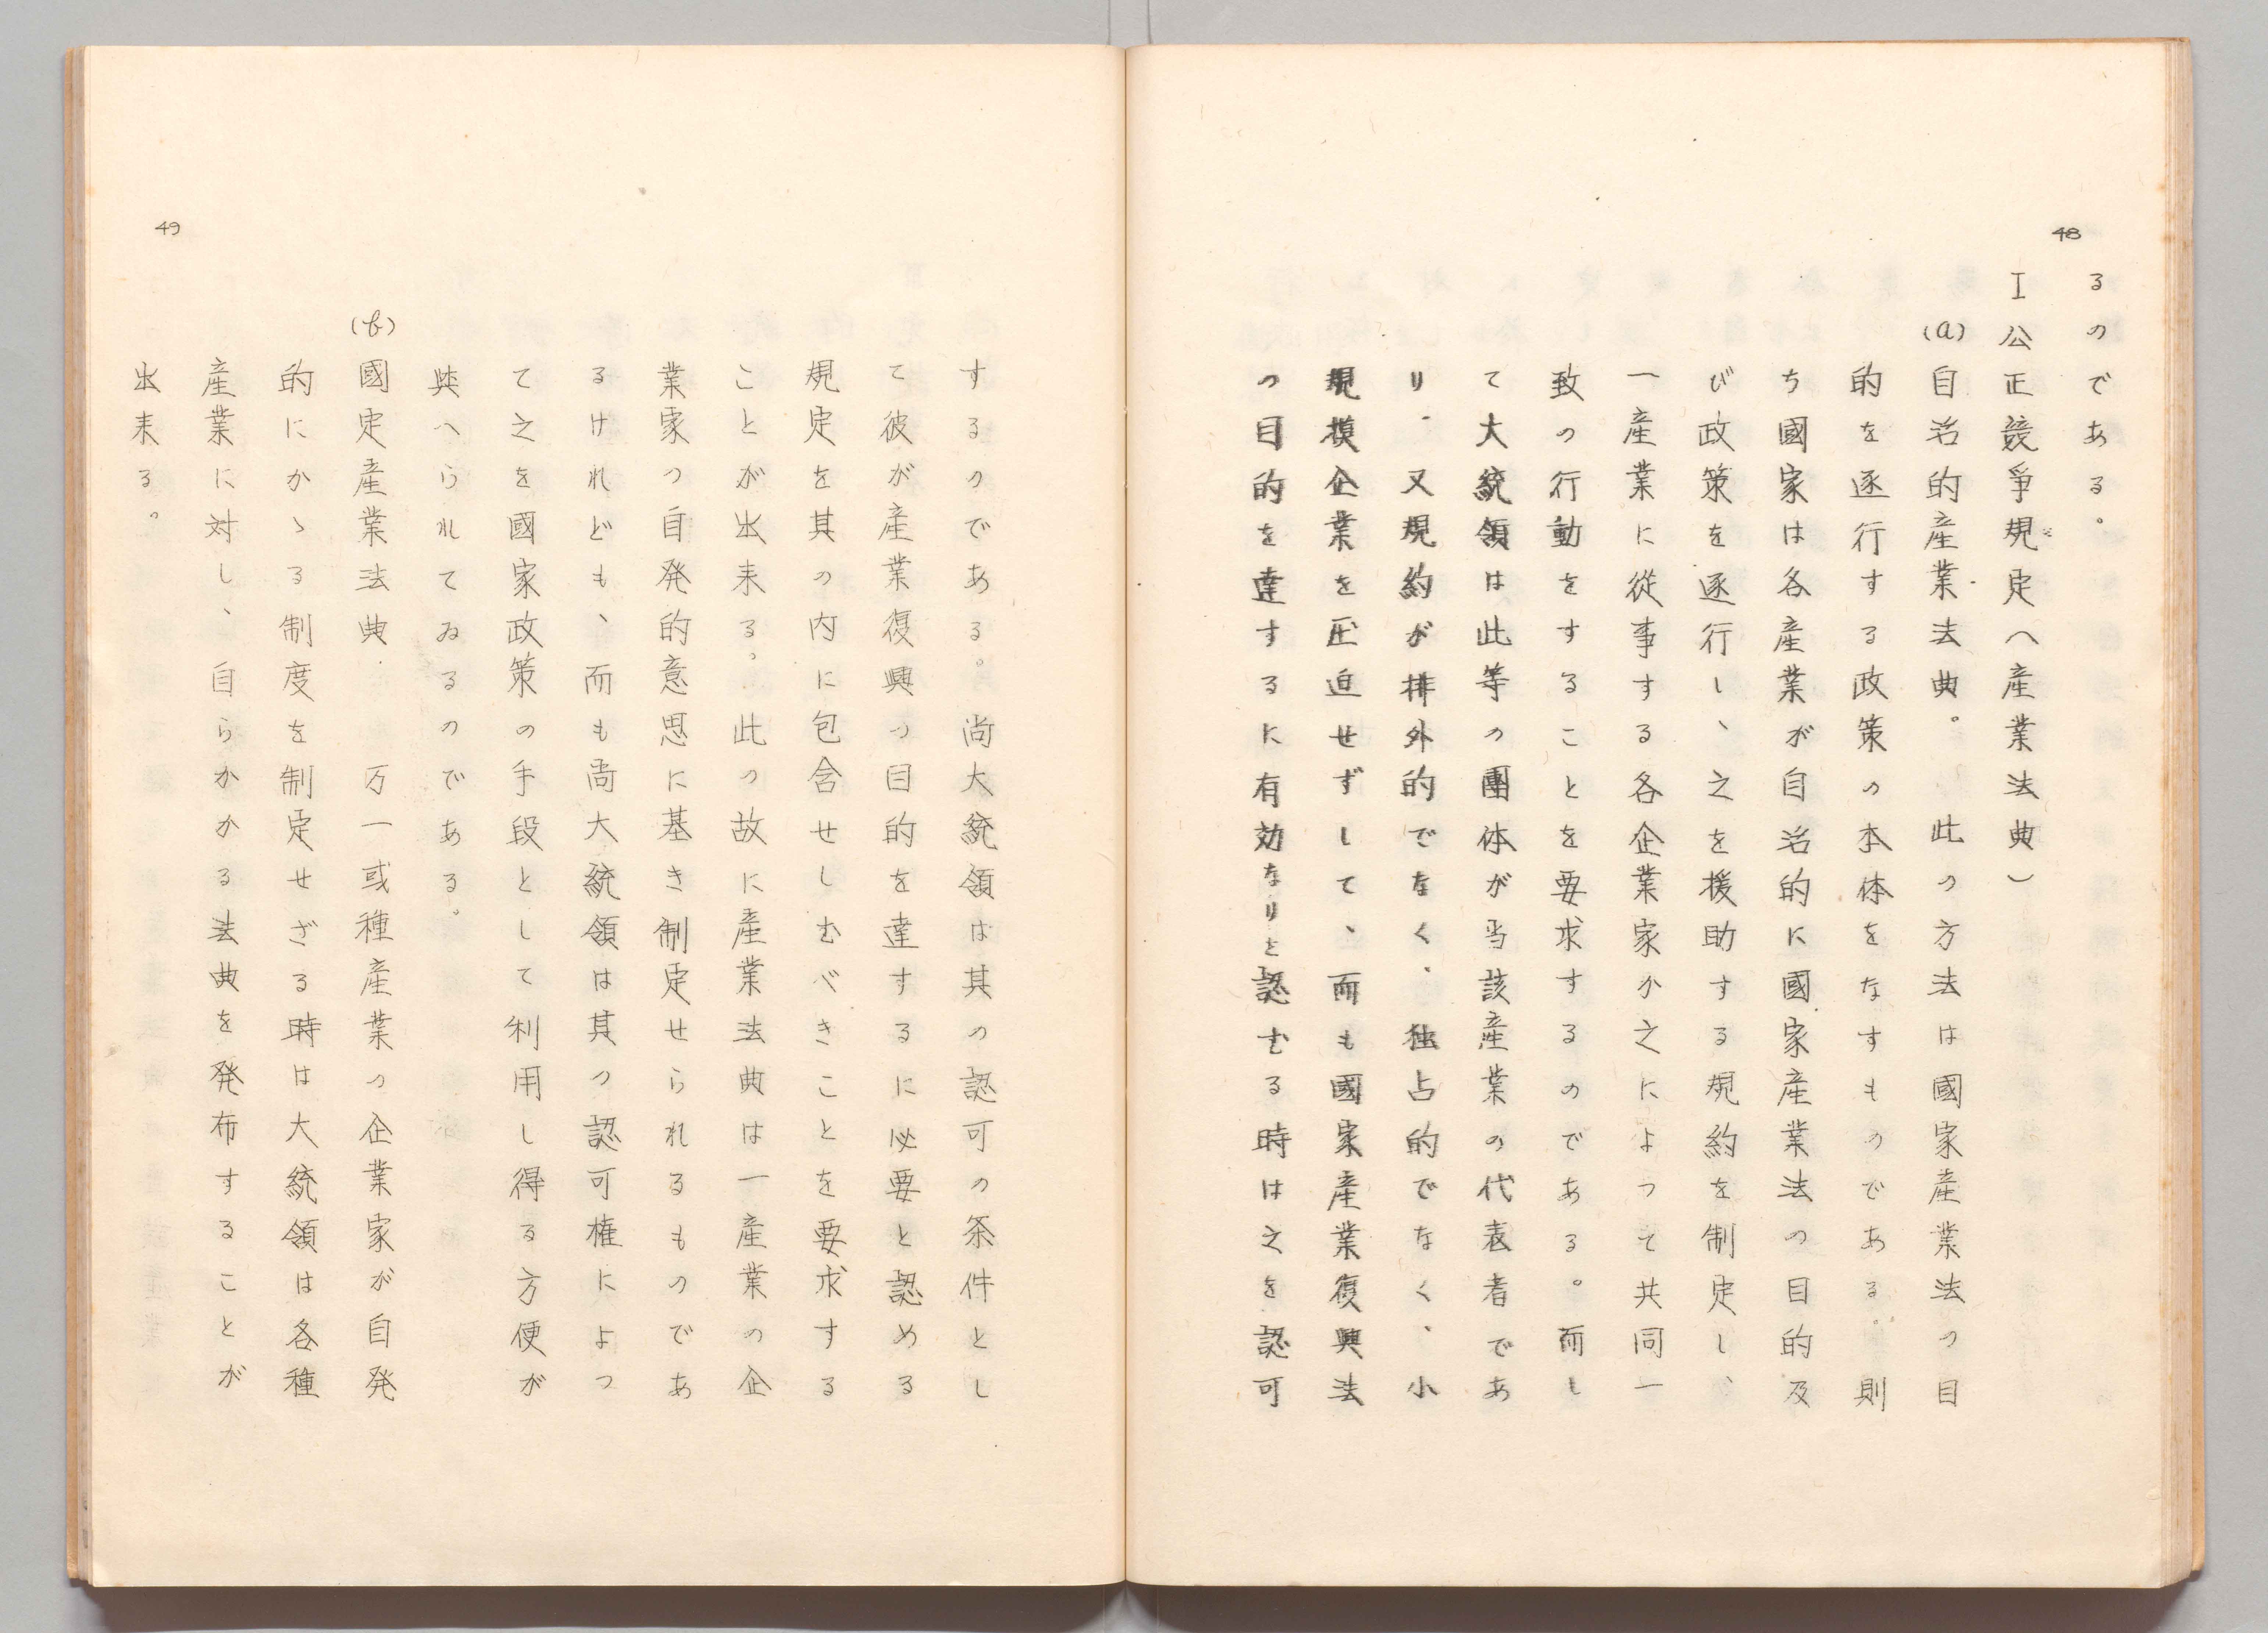 48
るのである。
I 公正競争規定(産業法典)
(a) 自治的産業法典。　此の方法は國家産業法の目
的を逐行する政策の本体をなすものである。則
ち國家は各産業が自治的に國家産業法の目的及
び政策を逐行し、之を援助する規約を制定し、
一産業に従事する各企業家か之によつて共同一
致の行動をすることを要求するのである。而し
て大統領は此等の團体が当該産業の代表者であ
り、又規約が排外的でなく、独占的でなく、小
規模企業を圧迫せずして、而も國家産業復興法
の目的を達するに有効なりと認むる時は之を認可
49
するのである。尚大統領は其の認可の条件とし
て彼が産業復興の目的を達するに必要と認める
規定を其の内に包含せしむべきことを要求する
ことが出来る。此の故に産業法典は一産業の企
業家の自発的意思に基き制定せられるものであ
るけれども、而も尚大統領は其の認可権によつ
て之を國家政策の手段として利用し得る方便が
與へられてゐるのである。
(b) 國定産業法典.　万一或種産業の企業家が自発
的にかゝる制度を制定せざる時は大統領は各種
産業に対し、自らかかる法典を発布することが
出来る。